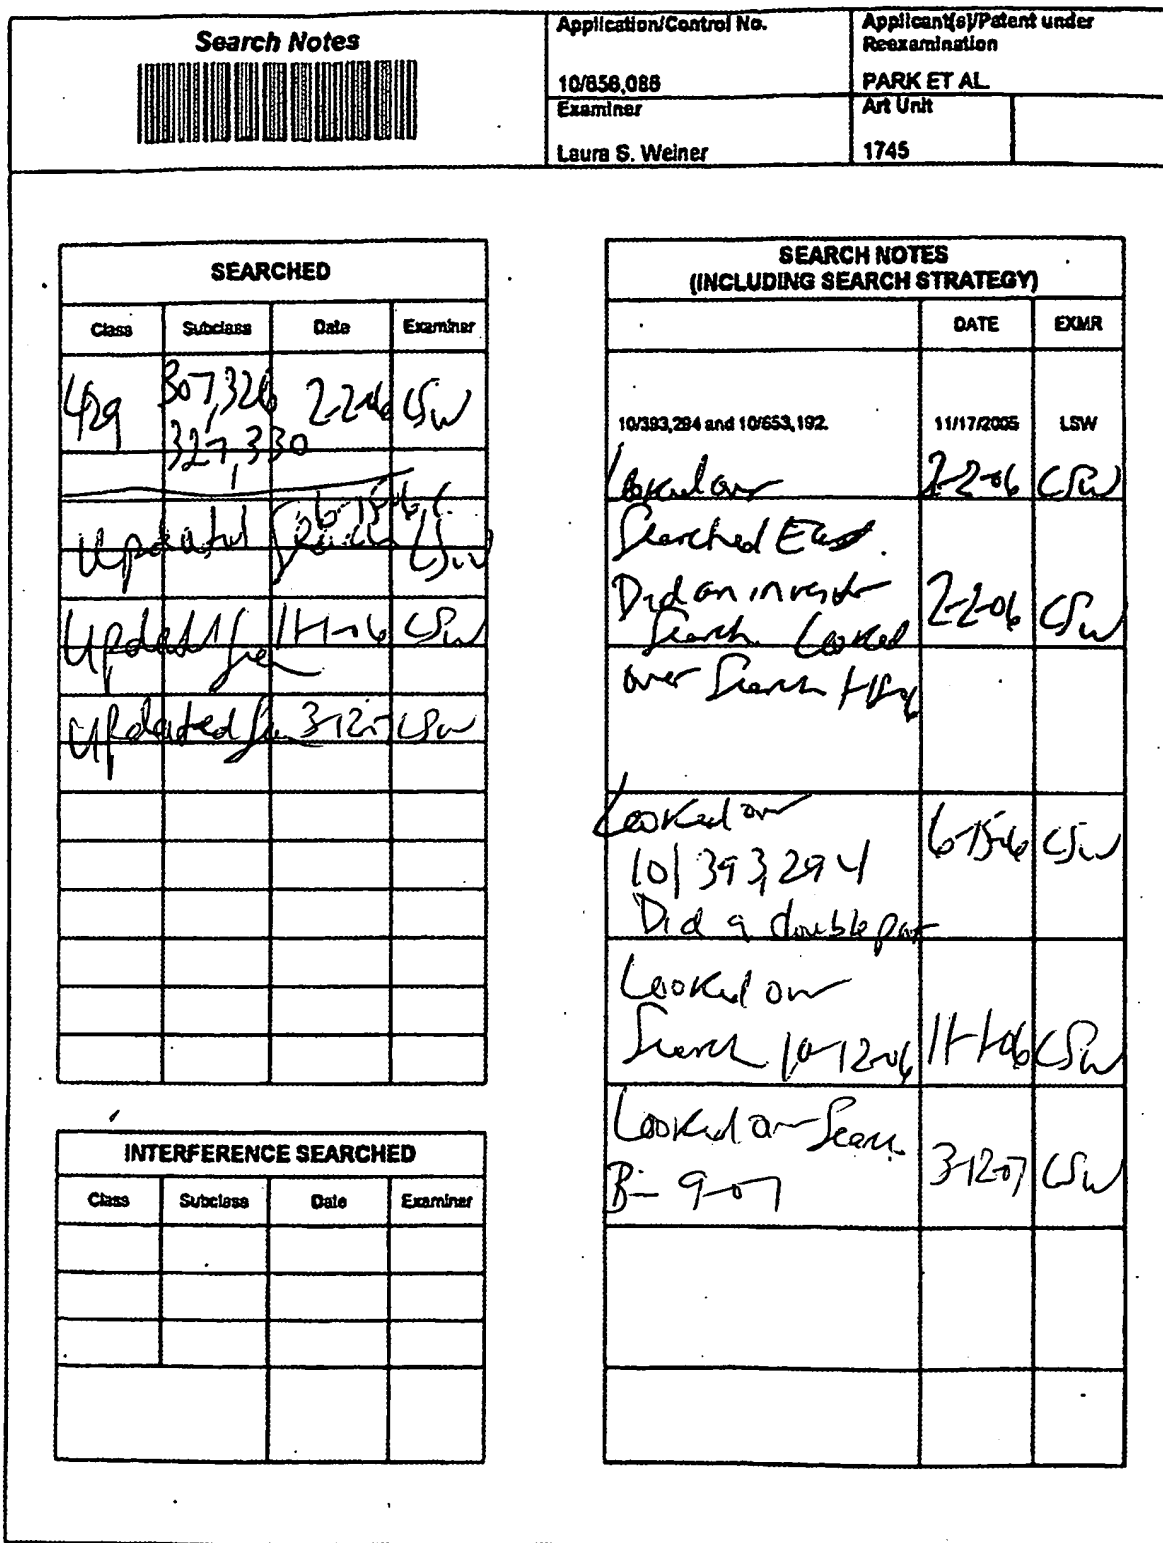 Search Notes
Application/Control No.
10/656,086
Examiner
Laura S. Weiner
Applicant(s)/Patent under
Reexamination
PARK ET AL.
Art Unit
1745
SEARCHED
Class Subclass Date Examiner
429 307,326 2-2-06 LSW
327,330
Updated Search 6-15-6 LSW
Updated 11-1-06 LSW
Updated 3-12-7 LSW
INTERFERENCE SEARCHED
Class Subclass Date Examiner
SEARCH NOTES
(INCLUDING SEARCH STRATEGY)
DATE EXMR
10/393,294 and 10/653,192. 11/17/2005 LSW
Looked over 2-2-06 LSW
Searched East.
Did an inventor 2-2-06 LSW
Search. Looked
over Search
Looked over 6-15-6 LSW
10/393,294
Did a double pat
Looked over
Search 10-12-06 11-1-06 LSW
Looked over Search
9-07 3-12-07 LSW